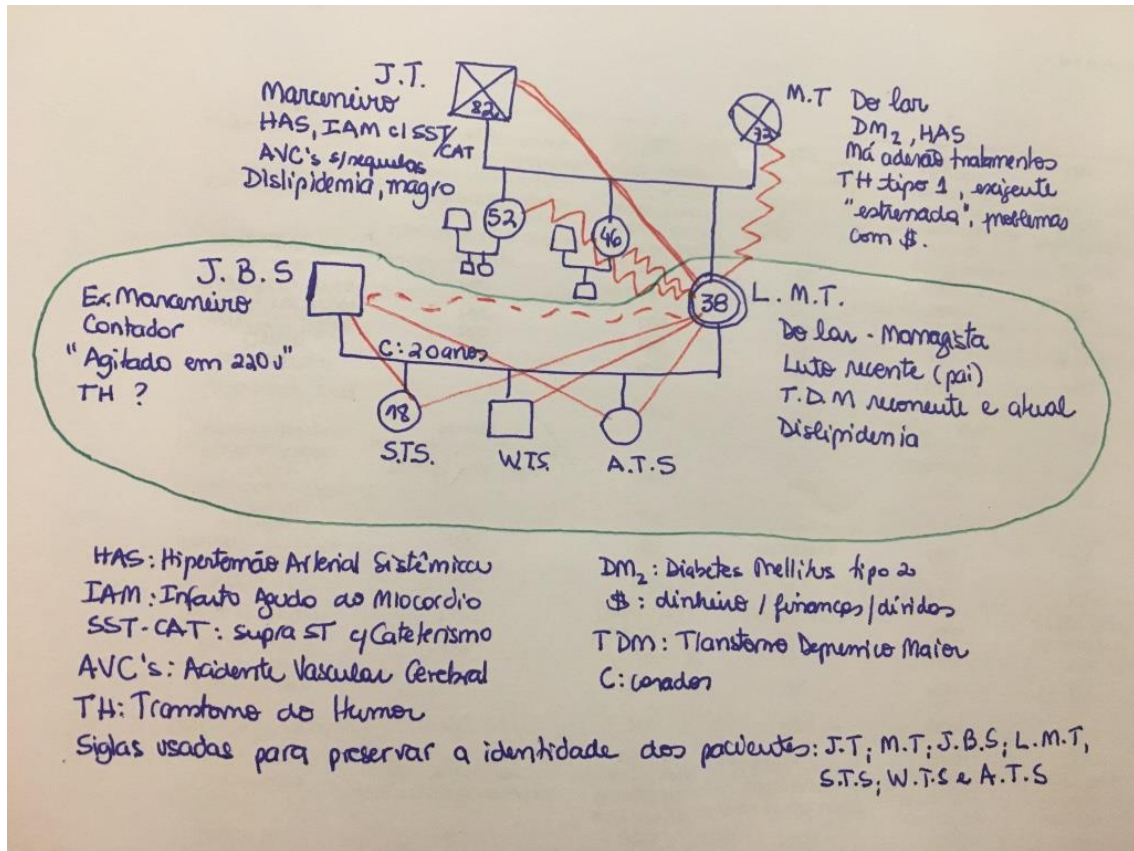 J.T.
Marceneiro
HAS, IAM c/ SST/
CAT
AVC's s/ sequelas
Dislipidemia, magro
82
M.T Do lar
DM2, HAS
Má adesão tratamentos
TH tipo 1, exigente
"estressada", problemas
com $.
52
46
J.B.S
Ex. Marceneiro
Contador
"Agitado em 220v"
TH ?
C: 20 anos
38
L.M.T.
Do lar - Massagista
Luto recente (pai)
T.D.M recorrente e atual
Dislipidemia
18
S.T.S.
W.T.S.
A.T.S
HAS: Hipertensão Arterial Sistêmica
IAM: Infarto Agudo do Miocordio
SST-CAT: supra ST c/ Cateterismo
AVC's: Acidente Vascular Cerebral
TH: Transtorno do Humor
DM2: Diabetes Mellitus tipo 2
$: dinheiro / finanças / dívidas
TDM: Transtorno Depressivo Maior
C: casados
Siglas usadas para preservar a identidade dos pacientes: J.T; M.T; J.B.S; L.M.T,
S.T.S; W.T.S e A.T.S